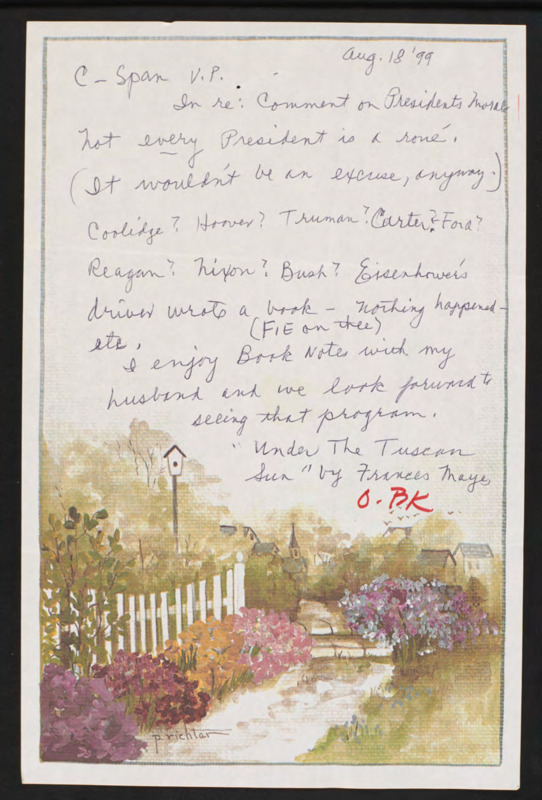 Aug. 18 '99
C-Span V.P.
In re: Comment on Presidents Morals
Not every President is a roué.
(It wouldn't be an excuse, anyway.)
Coolidge? Hoover? Truman? Carter? Ford?
Reagan? Nixon? Bush? Eisenhower's
driver wrote a book - nothing happened -
etc. (FIE on thee)
I enjoy Book Notes with my
husband and we look forward to
seeing that program.
"Under The Tuscan
Sun" by Frances Mayes
O. BK
p. richter